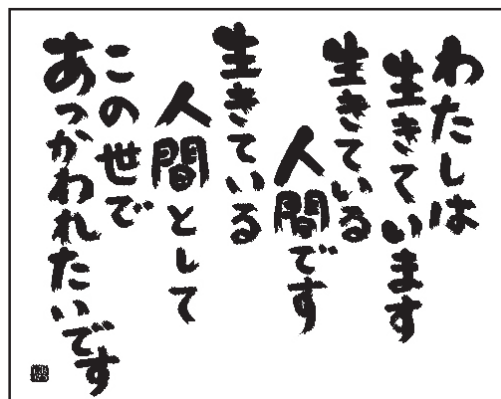 わたしは
生きています
生きている
人間です
生きている
人間として
この世で
あつかわれたいです